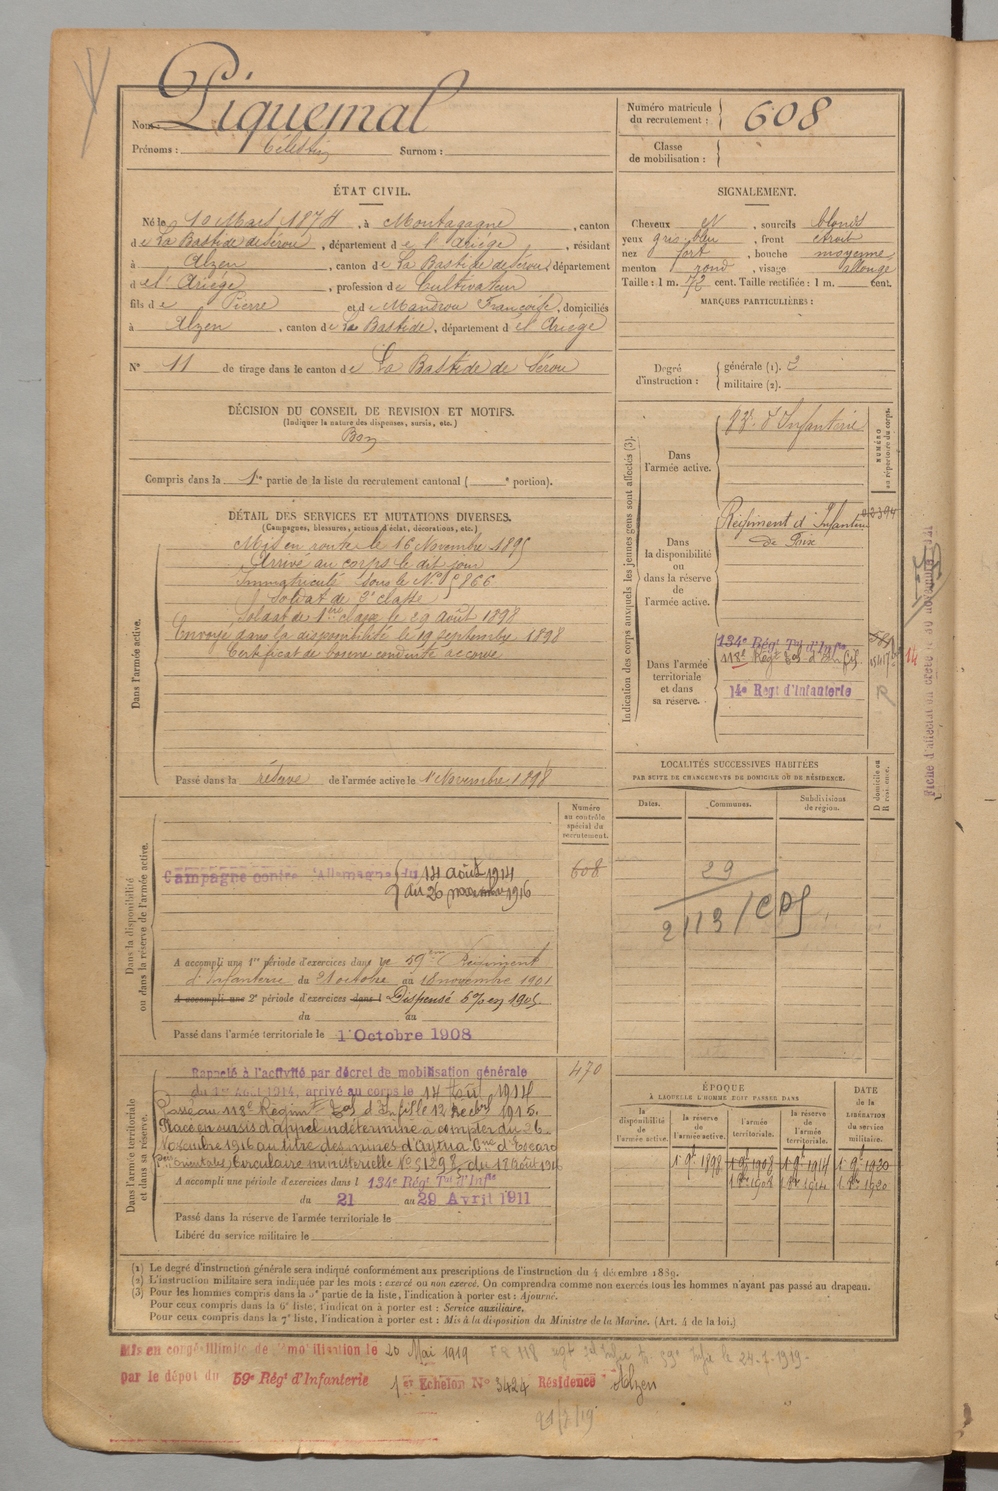 Nom : Piquemal
Prénoms : Célestin Surnom :
Numéro matricule du recrutement : 608
Classe de mobilisation :
ÉTAT CIVIL.
Né le 10 Mars 1874, à Montagagne, canton
de La Bastide de Sérou, département de l'Ariège, résidant
à Alzen, canton de La Bastide de Sérou, département
de l'Ariège, profession de Cultivateur
fils de Pierre et de Mandrou Françoise, domiciliés
à Alzen, canton de La Bastide, département de l'Ariège
N° 11 de tirage dans le canton de La Bastide de Sérou
SIGNALEMENT.
Cheveux N, sourcils blonds
yeux gris bleu, front étroit
nez fort, bouche moyenne
menton rond, visage allongé
Taille : 1 m. 72 cent. Taille rectifiée : 1 m. cent.
MARQUES PARTICULIÈRES :
Degré d'instruction : générale (1). 2
militaire (2).
DÉCISION DU CONSEIL DE REVISION ET MOTIFS.
(Indiquer la nature des dispenses, sursis, etc.)
Bon
Compris dans la 1re partie de la liste du recrutement cantonal ( e portion).
DÉTAIL DES SERVICES ET MUTATIONS DIVERSES.
(Campagnes, blessures, actions d'éclat, décorations, etc.)
Dans l'armée active.
Mis en route le 16 Novembre 1895
Arrivé au corps le dit jour
Immatriculé sous le N°
Soldat de 2e classe
Soldat de 1ère classe le 29 août 1898
Envoyé dans la disponibilité le 19 septembre 1898
Certificat de bonne conduite accordé
Passé dans la réserve de l'armée active le 1r Novembre 1898
Indication des corps auxquels les jeunes gens sont affectés (3).
NUMÉRO au répertoire du corps.
Dans l'armée active.
d'Infanterie
Dans la disponibilité ou dans la réserve de l'armée active.
Régiment d'Infanterie
de Foix
Dans l'armée territoriale et dans sa réserve.
134e Régt Tal d'Infie
118e Régt Tal d'Infie
14e Regt d'Infanterie
R
14
LOCALITÉS SUCCESSIVES HABITÉES
PAR SUITE DE CHANGEMENTS DE DOMICILE OU DE RÉSIDENCE.
Dates. Communes. Subdivisions de région. D domicile ou R résidence.
29
2113/CDS
Numéro au contrôle spécial du recrutement.
608
Dans la disponibilité ou dans la réserve de l'armée active.
Campagne contre l'Allemagne du 14 août 1914
au 26 novembre 1916
A accompli une 1re période d'exercices dans le 59ème Régiment
d'Infanterie du 21 octobre au 18 novembre 1901
A accompli une 2e période d'exercices dans l Dispensé en 1905
du au
Passé dans l'armée territoriale le 1r Octobre 1908
470
Dans l'armée territoriale et dans sa réserve.
Rappelé à l'activité par décret de mobilisation générale
du 1er Août 1914, arrivé au corps le 14 Août 1914
Passé au 118e Régimt Tal d'Infie le 12 Décbre 1915.
Placé en sursis d'appel indéterminé à compter du 26
Novembre 1916 au titre des mines d'
Circulaire ministérielle N° du 12 Août 1916
A accompli une période d'exercices dans l 134e Régt Tal d'Infie
du 21 au 29 Avril 1911
Passé dans la réserve de l'armée territoriale le
Libéré du service militaire le
ÉPOQUE
A LAQUELLE L'HOMME DOIT PASSER DANS
la disponibilité de l'armée active. la réserve de l'armée active. l'armée territoriale. la réserve de l'armée territoriale. DATE de la LIBÉRATION du service militaire.
1 9e 1898 1 9e 1908 1 9e 1914 1 9e 1920
1 8re 1908 1 8re 1914 1 8re 1920
(1) Le degré d'instruction générale sera indiqué conformément aux prescriptions de l'instruction du 4 décembre 1889.
(2) L'instruction militaire sera indiquée par les mots : exercé ou non exercé. On comprendra comme non exercés tous les hommes n'ayant pas passé au drapeau.
(3) Pour les hommes compris dans la 5e partie de la liste, l'indication à porter est : Ajourné.
Pour ceux compris dans la 6e liste, l'indication à porter est : Service auxiliaire.
Pour ceux compris dans la 7e liste, l'indication à porter est : Mis à la disposition du Ministre de la Marine. (Art. 4 de la loi.)
Mis en congé illimité de démobilisation le 20 Mai 1919
par le dépôt du 59e Régt d'Infanterie 1er Echelon N° 3424 Résidence Alzen